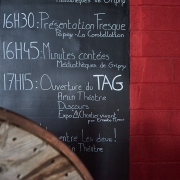 Médiathèques de Grigny
16H30: Présentation Fresque
Papay - La Constellation
16H45: Minutes contées
Médiathèques de Grigny
17H15: Ouverture du TAG
Amin Théâtre
Discours
entre Les deux!
Théâtre